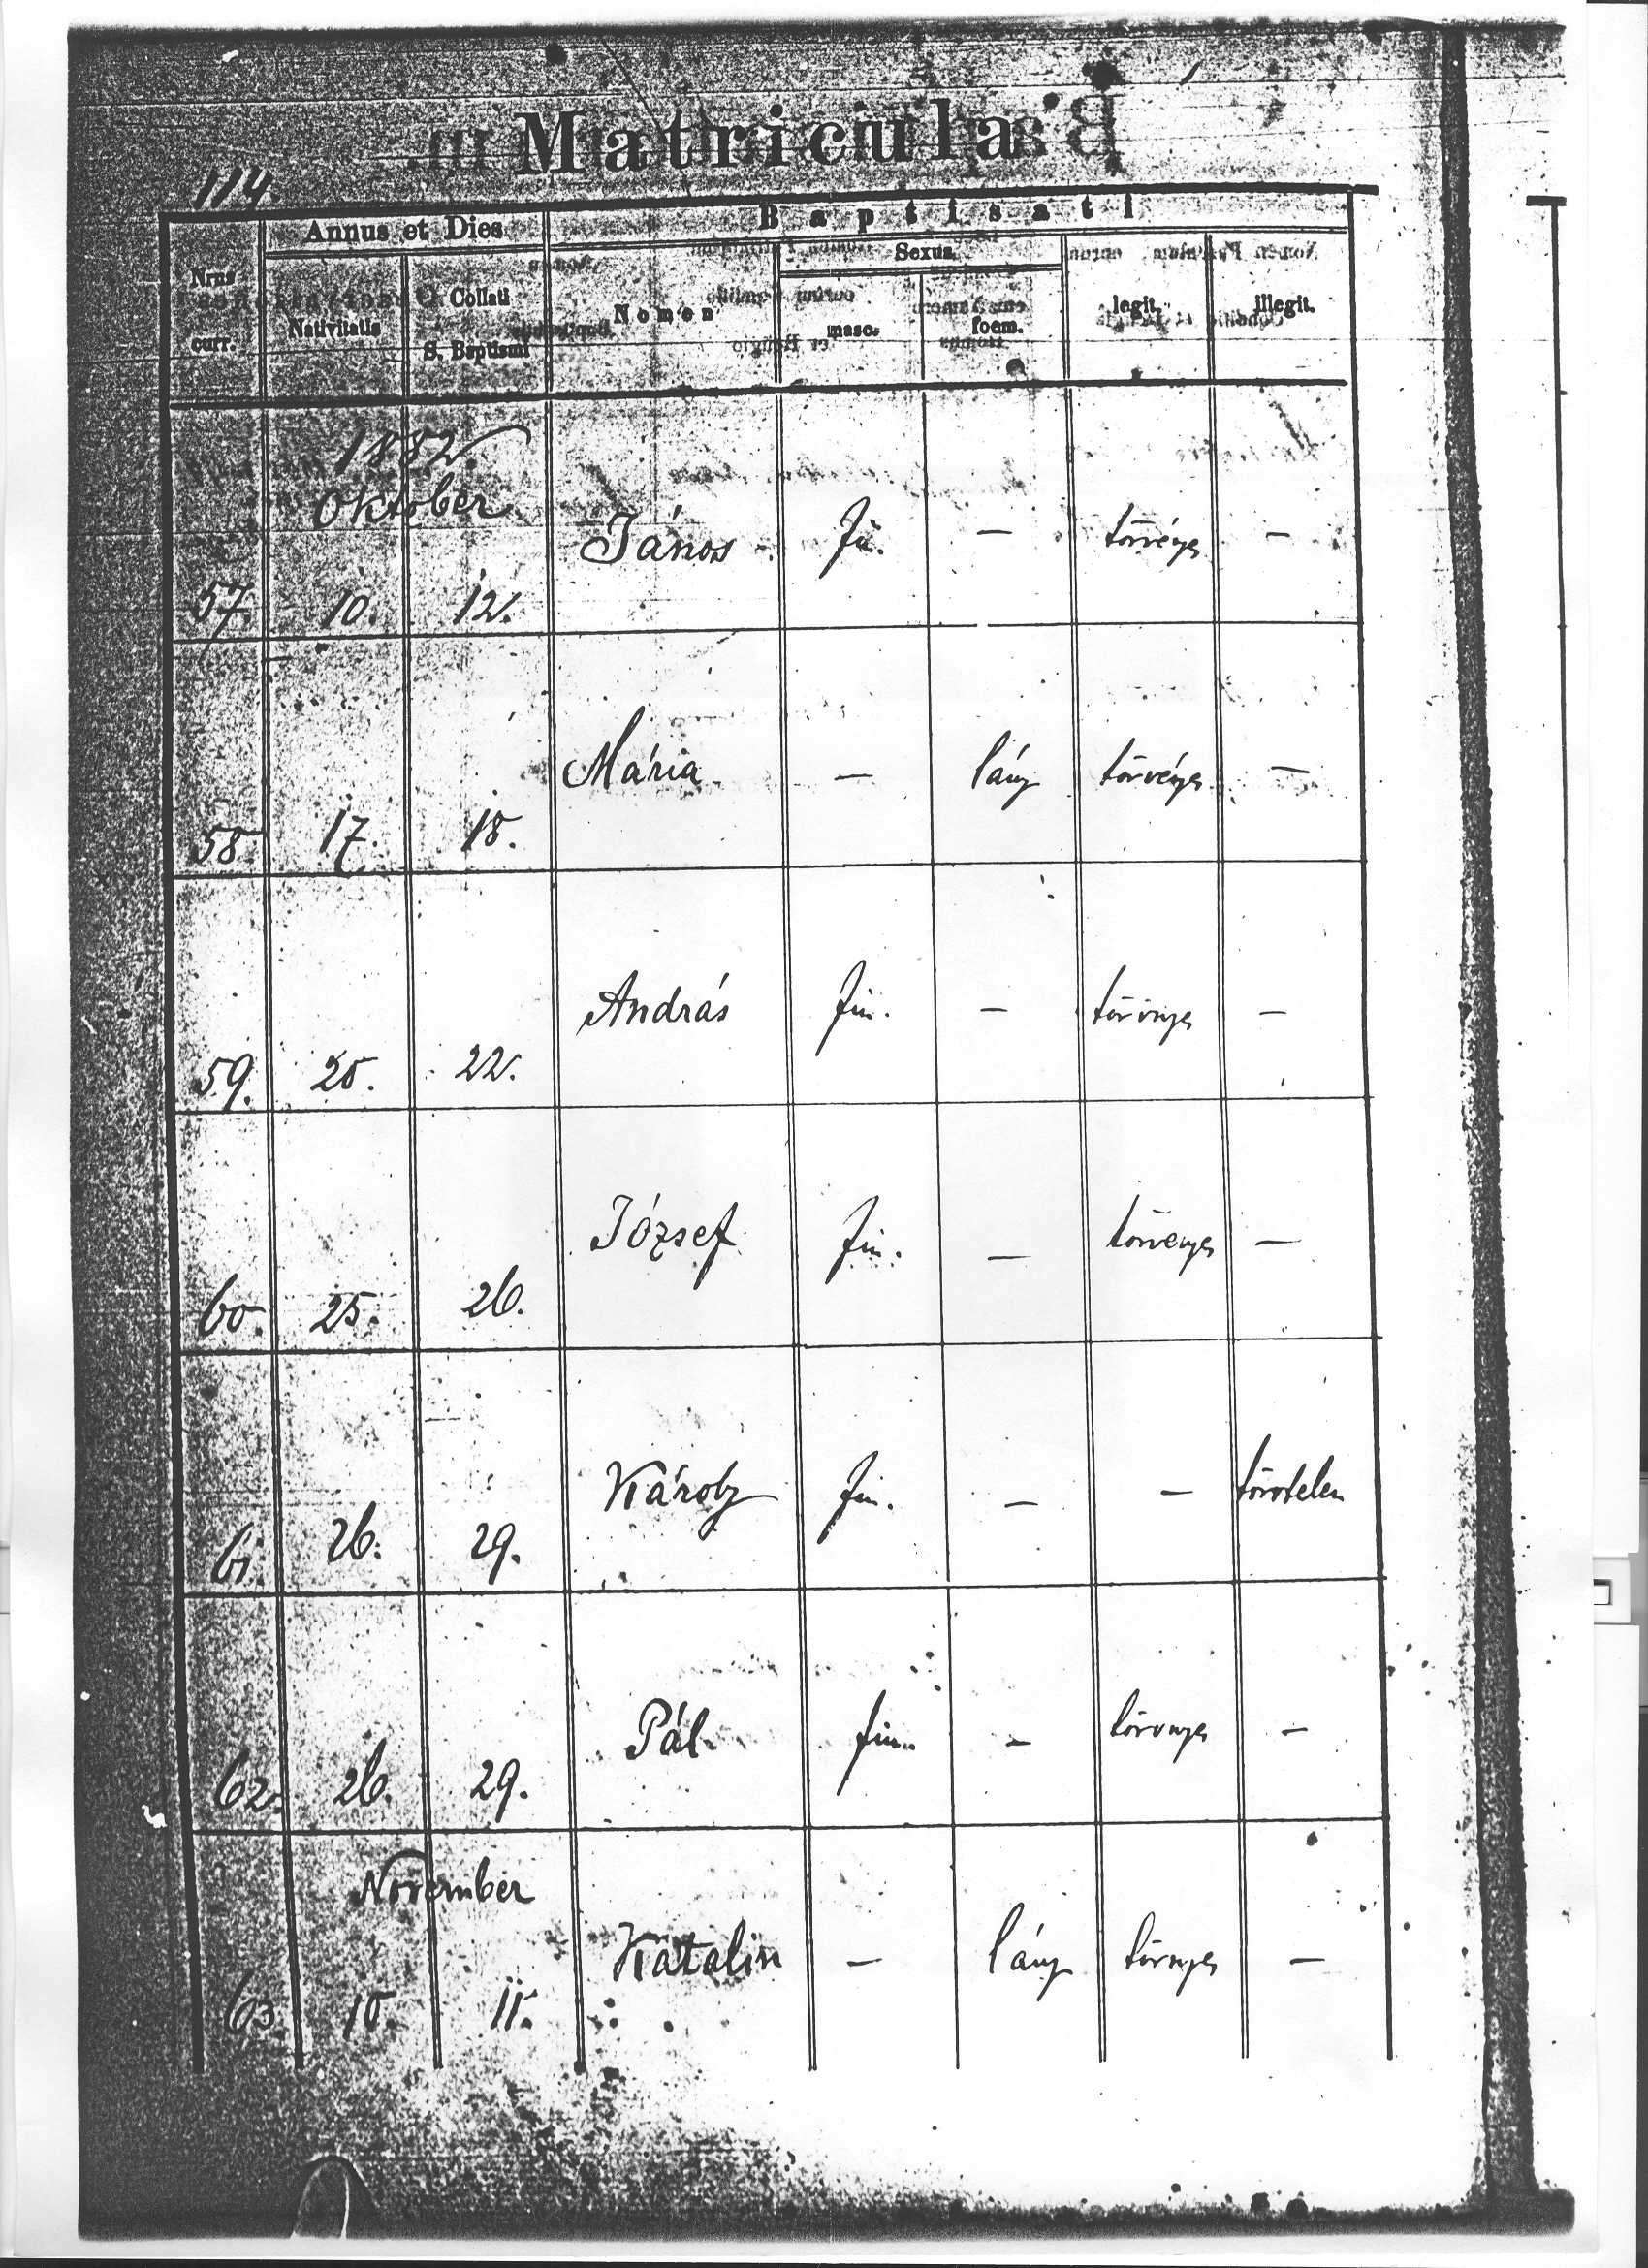 Matricula
114.
Annus et Dies
Baptisati
Nrus curr.
Nativitatis
Collati S. Baptismi
Nomen
Sexus
masc.
foem.
legit.
illegit.
1882
Október
57. 10. 12. János fiú. — törvényes —
58. 17. 18. Mária — lány törvényes —
59. 20. 22. András fiú. — törvnyes —
60. 25. 26. József fiú. — törvenyes —
61. 26. 29. Károly fiú. — — törvtelen
62. 26. 29. Pál fiú. — törvnyes —
November
63 10. 11. Katalin — lány törvnyes —